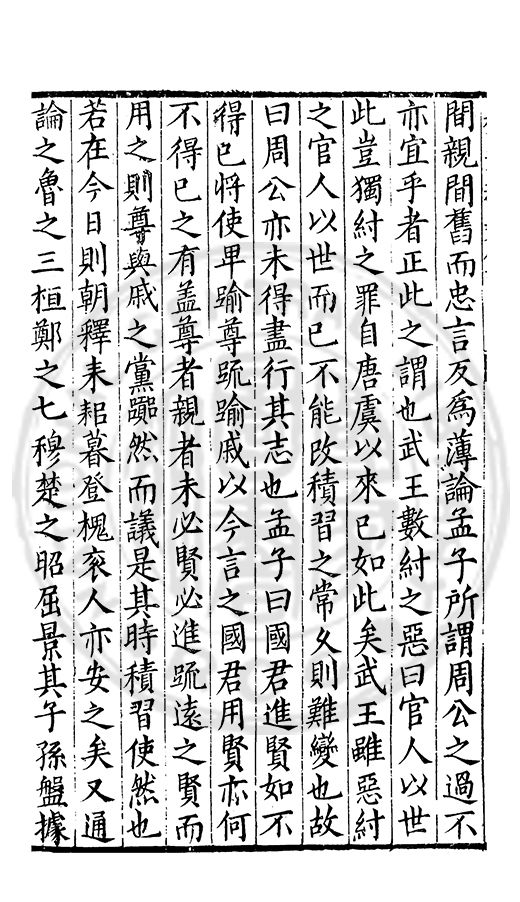 間親間舊而忠言反爲薄論孟子所謂周公之過不
亦宜乎者正此之謂也武王數紂之惡曰官人以世
此豈獨紂之罪自唐虞以來已如此矣武王雖惡紂
之官人以世而已不能改積習之常久則難變也故
曰周公亦未得盡行其志也孟子曰國君進賢如不
得已將使卑踰尊䟽踰戚以今言之國君用賢亦何
不得已之有盖尊者親者未必賢必進䟽遠之賢而
用之則尊與戚之黨艴然而議是其時積習使然也
若在今日則朝釋耒耜暮登槐衮人亦安之矣又通
論之魯之三桓鄭之七穆楚之昭屈景其子孫盤據